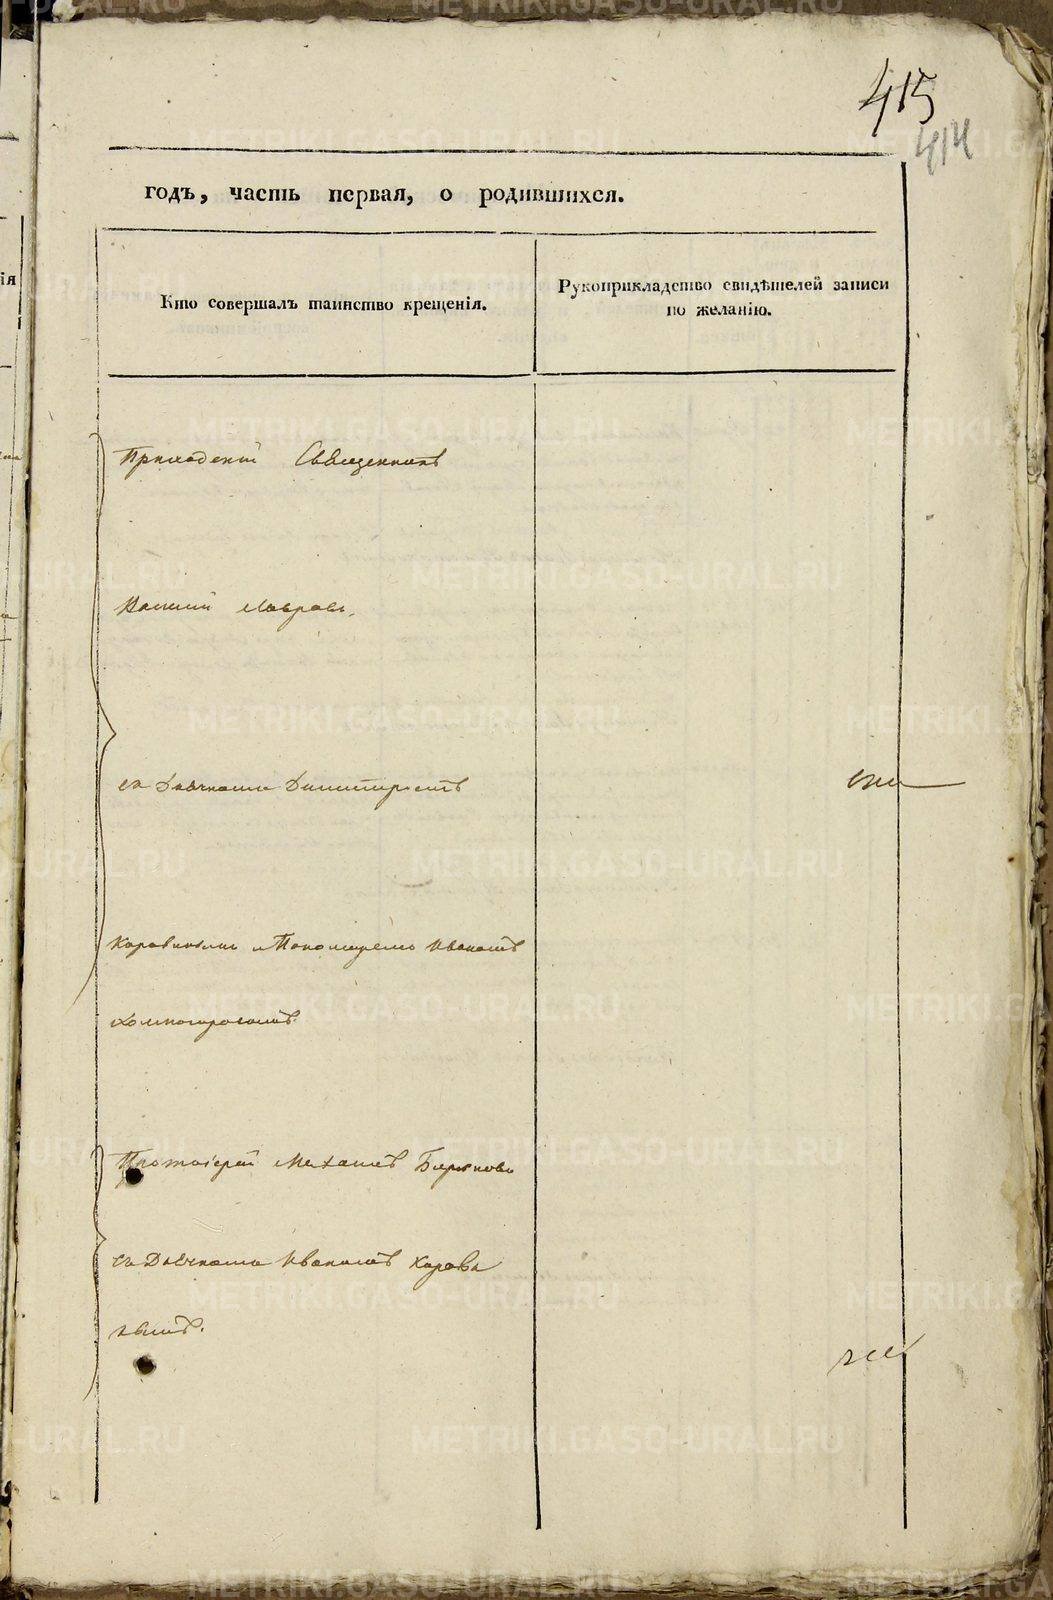 415
414
годъ, часть первая, о родившихся.
Кто совершалъ таинство крещенія.
Рукоприкладство свидѣтелей записи
по желанію.
Приходскій Священникъ
Василій Лавровъ
съ Дьячкомъ Димитріемъ
и Пономаремъ Иваномъ
Холмогоровымъ
Протоіерей Михаилъ Бирюковъ
съ Дьячкомъ Иваномъ
METRIKI.GASO-URAL.RU